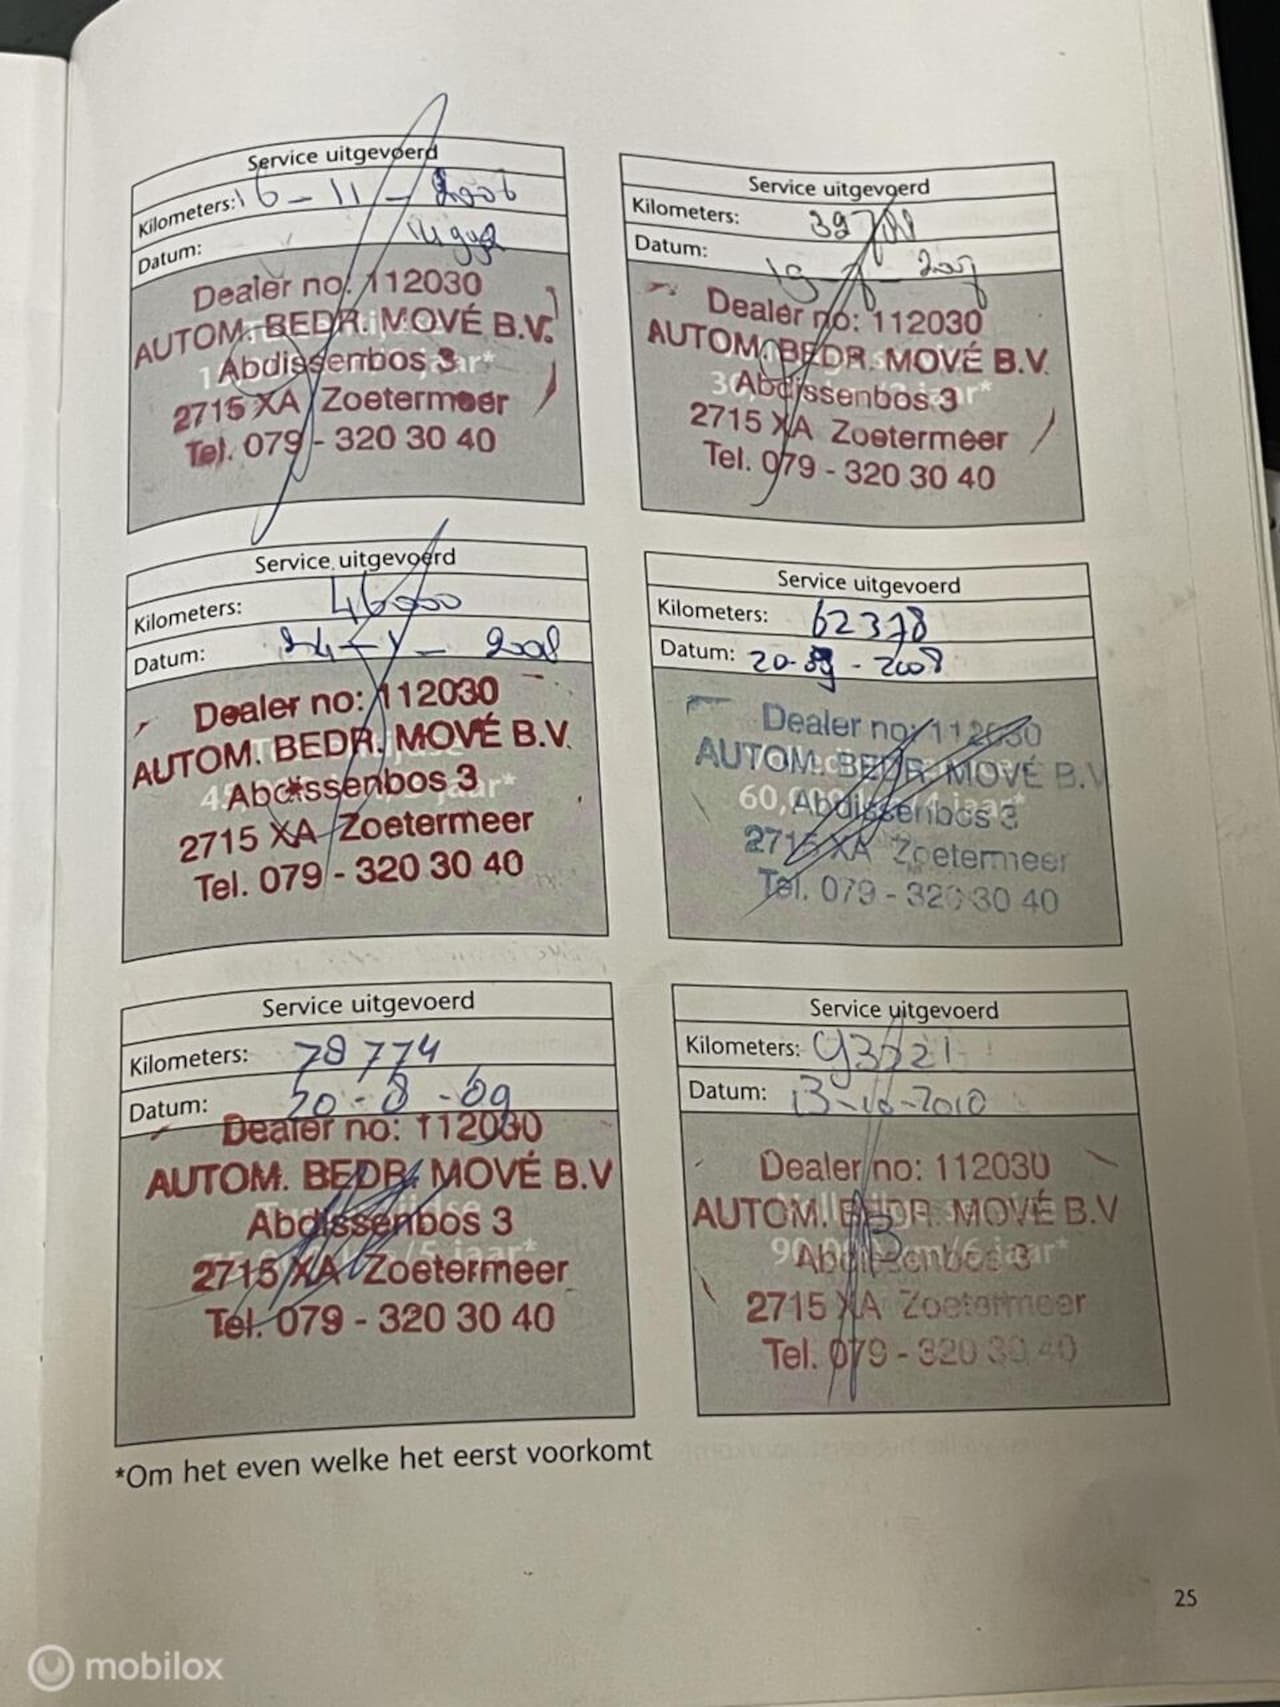 Service uitgevoerd
Kilometers: 16-11-2006
Datum:
Dealer no: 112030
AUTOM. BEDR. MOVÉ B.V.
Abdissenbos 3
2715 XA Zoetermeer
Tel. 079 - 320 30 40
Service uitgevoerd
Kilometers:
Datum:
Dealer no: 112030
AUTOM. BEDR. MOVÉ B.V.
30, jaar*
Abdissenbos 3
2715 XA Zoetermeer
Tel. 079 - 320 30 40
Service uitgevoerd
Kilometers: 46000
Datum: 2008
Dealer no: 112030
AUTOM. BEDR. MOVÉ B.V.
jaar*
Abdissenbos 3
2715 XA Zoetermeer
Tel. 079 - 320 30 40
Service uitgevoerd
Kilometers: 62378
Datum: 20- - 2008
Dealer no: 112030
AUTOM. BEDR. MOVÉ B.V
60,000 jaar*
Abdissenbos 3
2715 XA Zoetermeer
Tel. 079 - 320 30 40
Service uitgevoerd
Kilometers: 78774
Datum: 20-8-09
Dealer no: 112030
AUTOM. BEDR. MOVÉ B.V
Abdissenbos 3
/5 jaar*
2715 XA Zoetermeer
Tel. 079 - 320 30 40
Service uitgevoerd
Kilometers: 93221
Datum: 13-10-2010
Dealer no: 112030
AUTOM. BEDR. MOVÉ B.V
90,000 km/6 jaar*
Abdissenbos 3
2715 XA Zoetermeer
Tel. 079 - 320 30 40
*Om het even welke het eerst voorkomt
25
mobilox